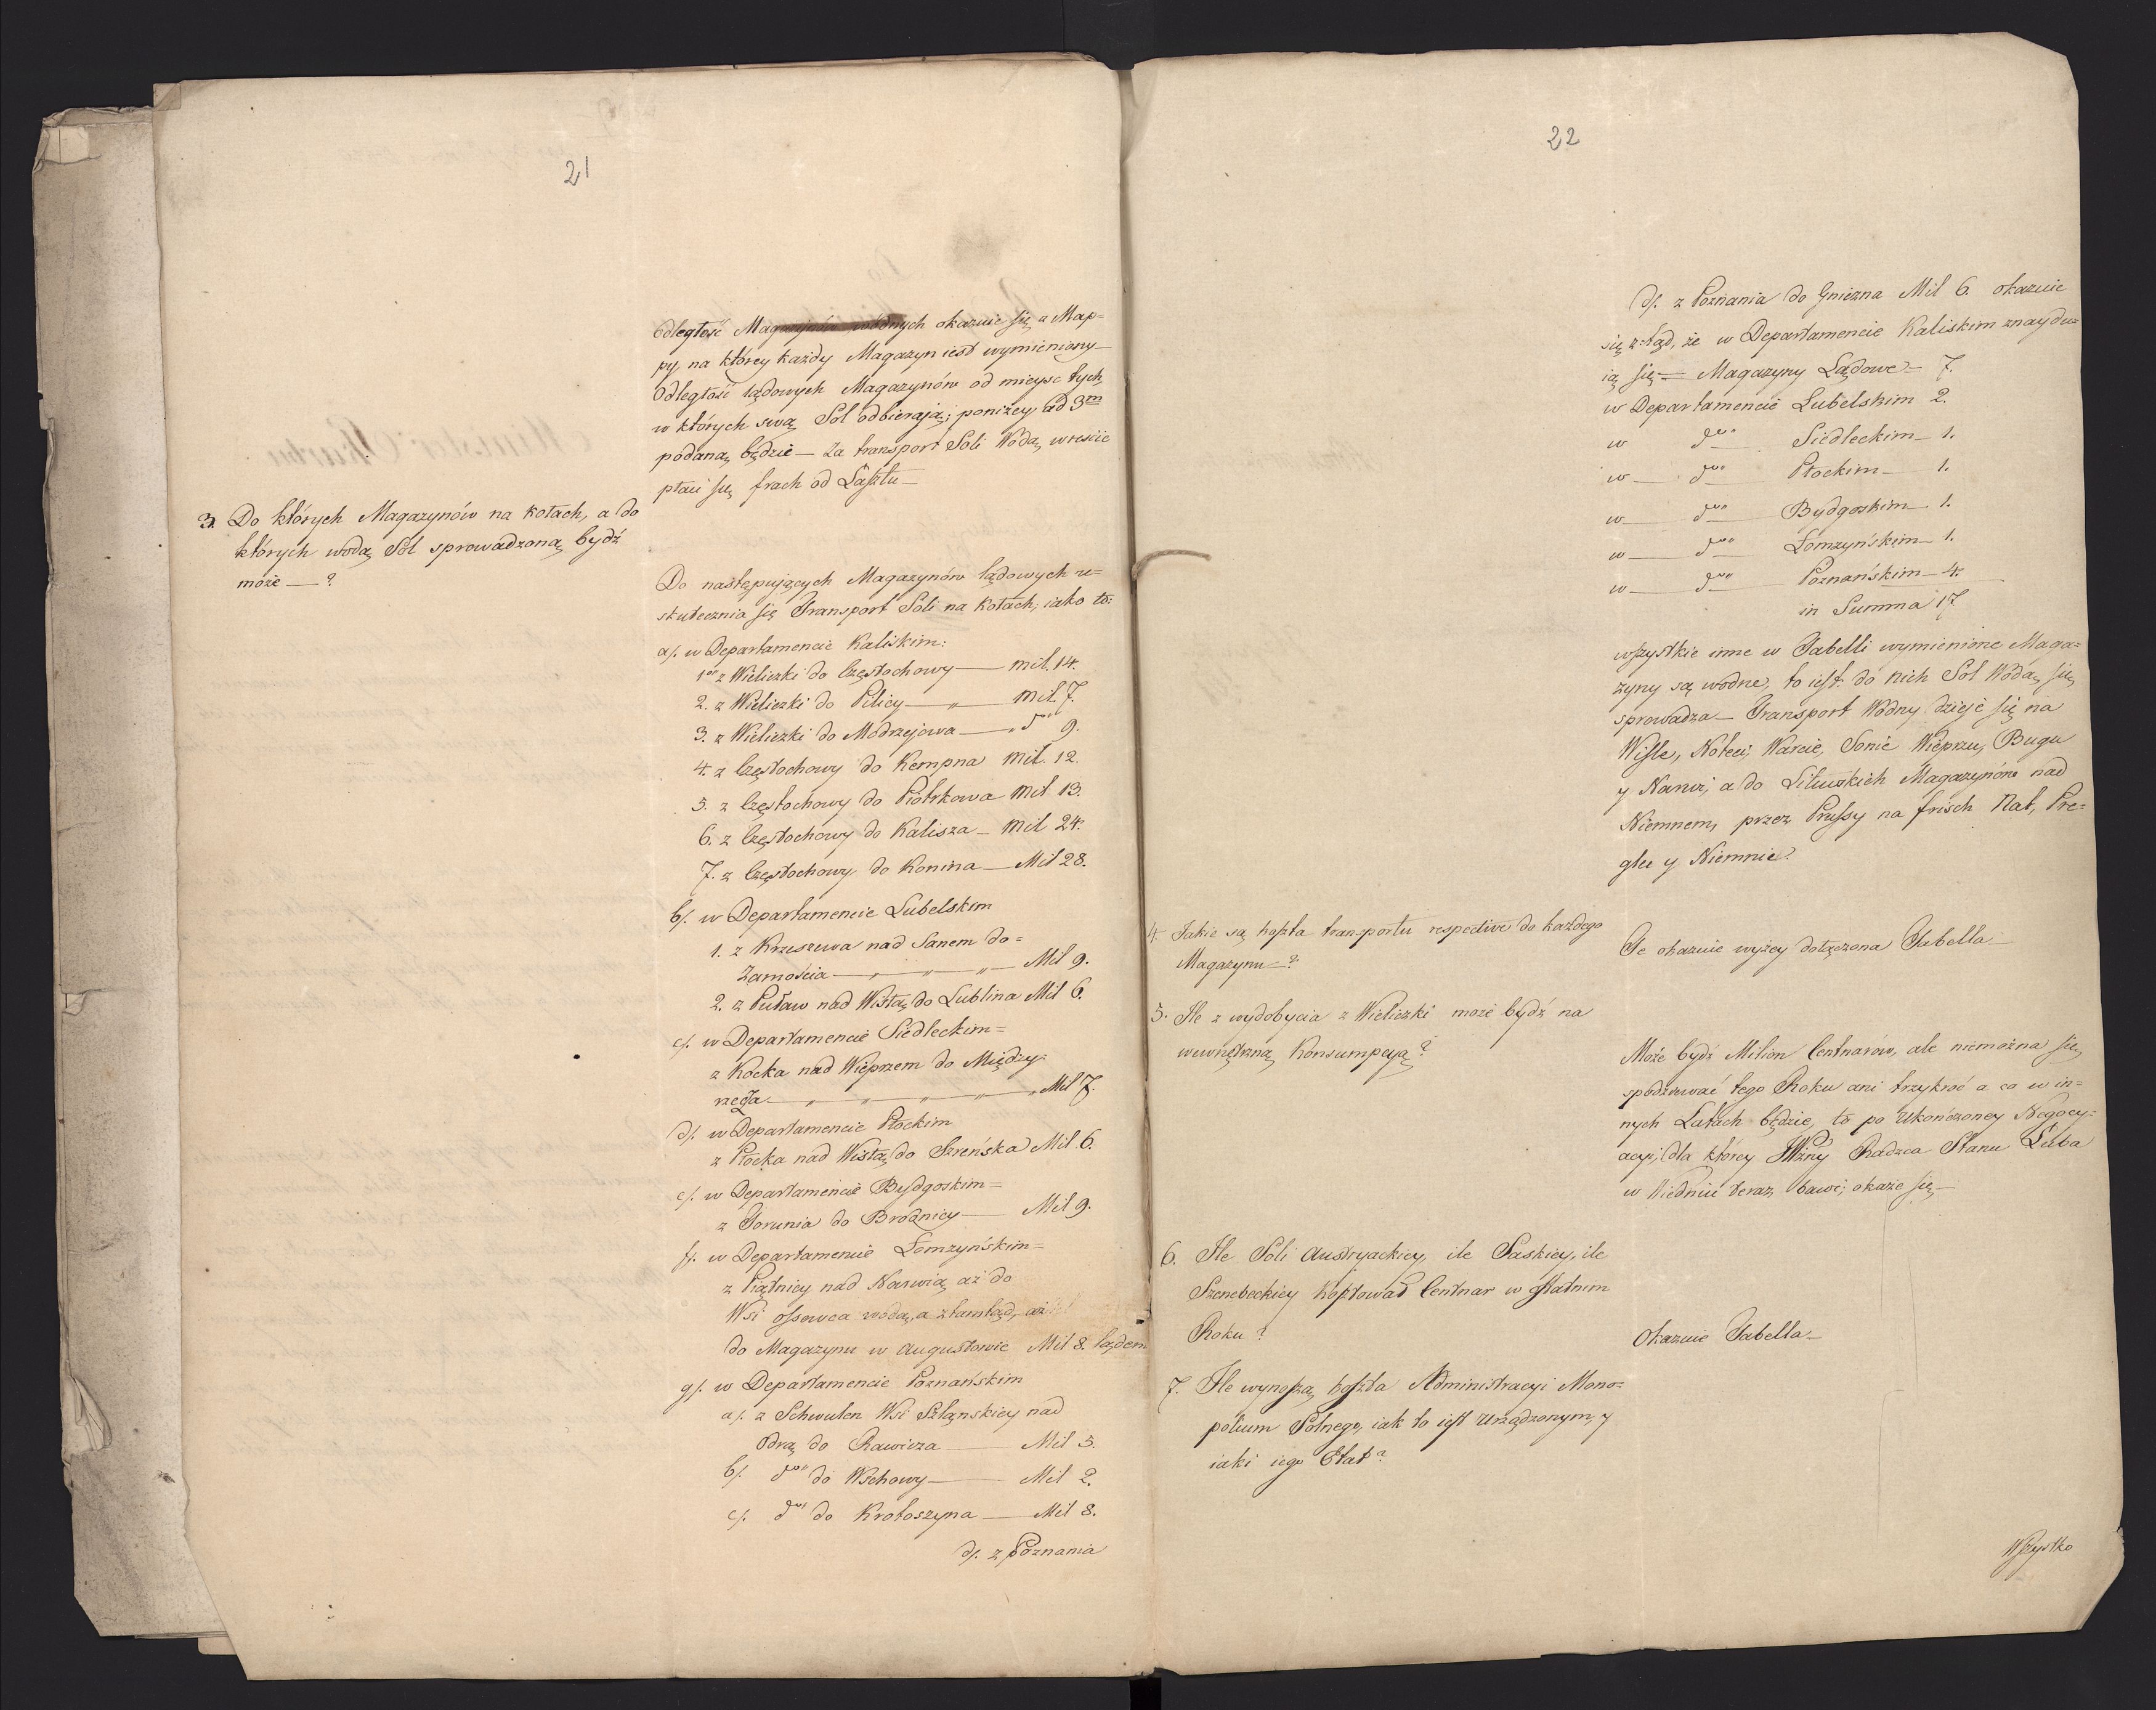 21
Odległość Magazynów wodnych okazuie się z Map=
py, na którey każdy Magazyn iest wymieniony
Odległość lądowych Magazynów od mieysc tych,
w których swą Sól odbieraią; poniżey ad 3m
podaną będzie — Za transport Soli Wodą, wreście
płaci się frach od Lasztu —
3. Do których Magazynów na kołach, a do
których wodą Sól sprowadzoną bydź
może — ?
Do następujących Magazynów lądowych u=
skutecznia się Transport Soli na kołach; iako to:
a/. w Departamencie Kaliskim:
1o z Wieliczki do Częstochowy — mil. 14.
2. z Wieliczki do Pilicy — „ — mil. 7.
3. z Wieliczki do Modrzejowa — „ dto 9.
4. z Częstochowy do Kempna mil. 12.
5. z Częstochowy do Piotrkowa mil 13.
6. z Częstochowy do Kalisza — mil 24.
7. z Częstochowy do Konina — Mil 28.
b/. w Departamencie Lubelskim
1. z Krzeszewa nad Sanem do =
Zamościa — „ — „ — „ — Mil 9.
2. z Puław nad Wisłą do Lublina Mil 6.
c/. w Departamencie Siedleckim =
z Kocka nad Wieprzem do Między=
rzecza — „ — „ — „ — „ — „ Mil 7.
d/. w Departamencie Płockim
z Płocka nad Wisłą do Szreńska Mil. 6.
e/. w Departamencie Bydgoskim =
z Torunia do Brodnicy — Mil 9.
f/. w Departamencie Łomżyńskim =
z Piątnicy nad Narwią aż do
Wsi Ossowca wodą, a ztamtąd, aż
do Magazynu w Augustowie Mil 8. lądem
g/. w Departamencie Poznańskim
a/. z Schwulen Wsi Szląnskiey nad
Odrą do Rawicza — Mil 5.
b/. dto do Wschowy — Mil 2.
c/. dto do Krotoszyna — Mil 8.
d/. z Poznania
22
d/. z Poznania do Gniezna Mil 6. okazuie
się ztąd, że w Departamencie Kaliskim znaydu=
ią się = Magazyny Lądowe — 7.
w Departamencie Lubelskim 2.
w dto Siedleckim — 1.
w — dto Płockim — 1.
w — dto Bydgoskim — 1.
w — dto Łomzyńskim — 1.
w — dto Poznańskim — 4.
in Summa 17
wszystkie inne w Tabelli wymienione Maga=
zyny są wodne, to iest: do nich Sól Wodą się
sprowadza — Transport Wodny dzieje się na
Wisle, Noteci, Warcie, Sonie Wieprzu, Bugu
y Narwi, a do Litewskich Magazynów nad
Niemnem, przez Prussy na frisch Nat, Pre=
glu y Niemnie.
4. Jakie są koszta transportu respective do każdego
Magazynu — ?
Te okazuie wyżey dołączona Tabella —
5. Ile z wydobycia z Wieliczki może bydź na
wewnętrzną Konsumpcyją ?
Może bydź Milion Centnarów, ale niemożna się
spodziewać tego Roku ani trzykroć a co w in=
nych Latach będzie, to po Ukończoney Negocy=
acyi, dla którey JWżny Radzca Stanu Łuba
w Wiedniu teraz bawi; okaże się —
6. Ile Soli Austryackiey, ile Saskiey, ile
Szenebeckiey kosztował Centnar w ostatnim
Roku ?
Okazuie Tabella —
7. Ile wynoszą koszta Administracyi Mono=
polium Solnego, iak to iest urządzonym, y
iaki iego Etat ?
Wszystko